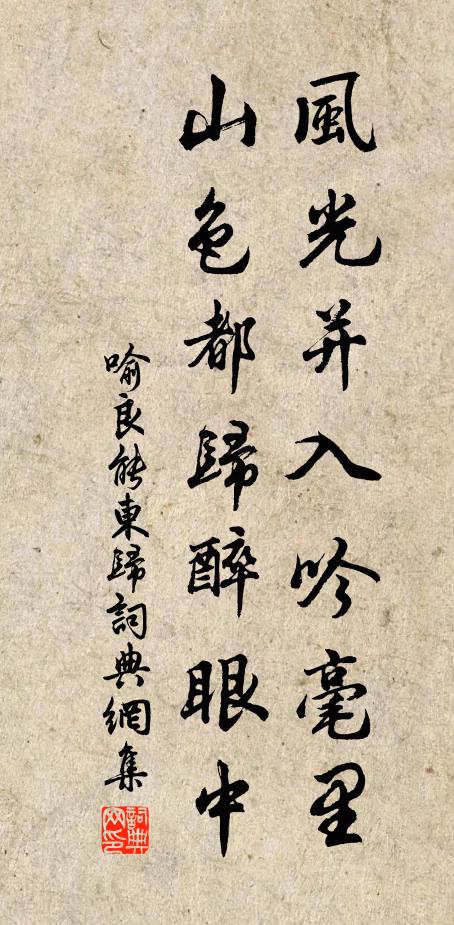 風光并入吟毫里
山色都歸醉眼中
喻良能東歸詞典網集
詞典網印